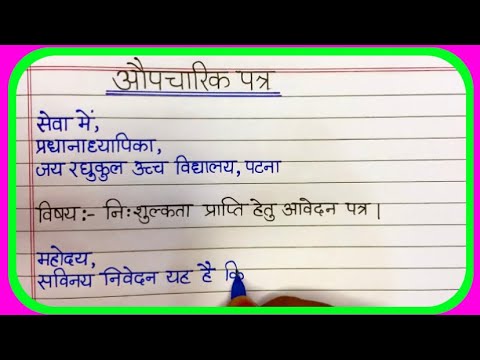 औपचारिक पत्र
सेवा में,
प्रधानाध्यापिका,
जय रघुकुल उच्च विद्यालय, पटना
विषय :- निःशुल्कता प्राप्ति हेतु आवेदन पत्र |
महोदय,
सविनय निवेदन यह है कि